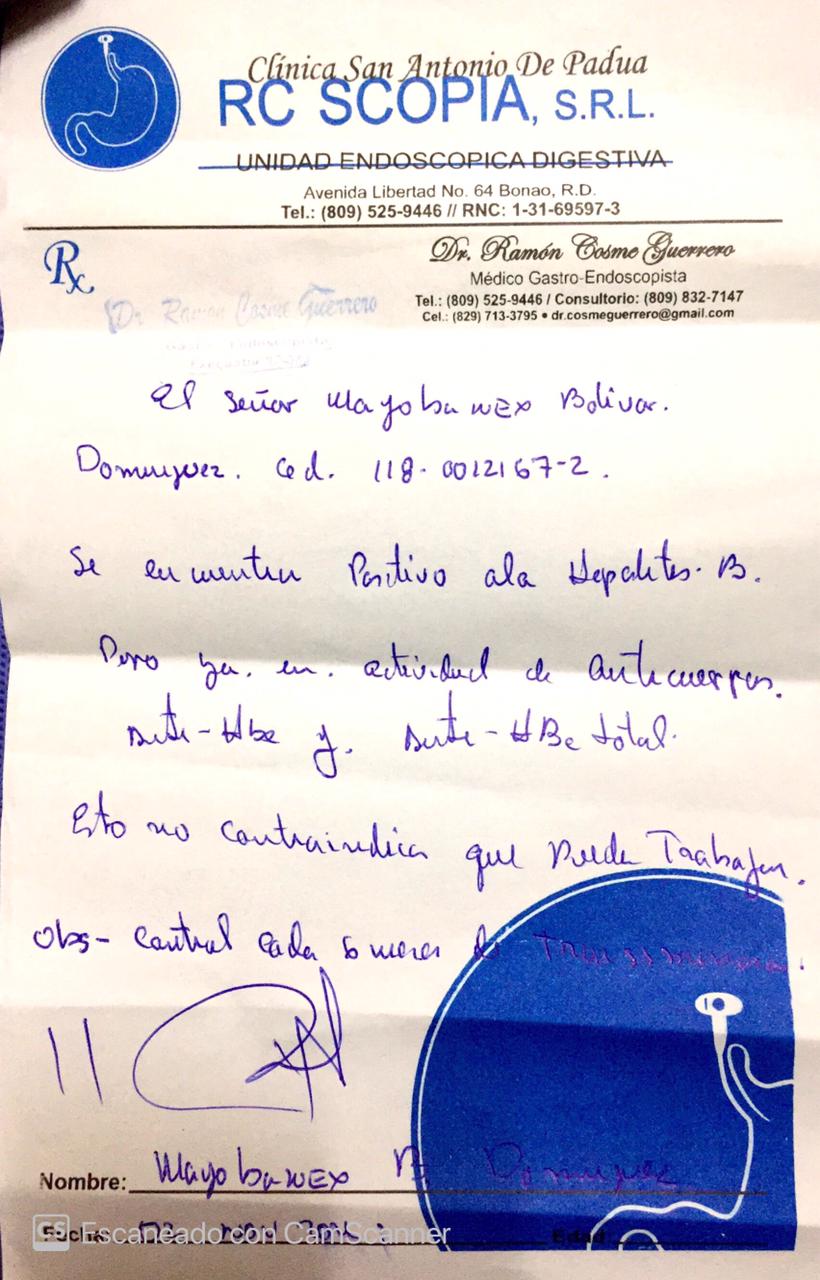 Clínica San Antonio De Padua
RC SCOPIA, S.R.L.
UNIDAD ENDOSCOPICA DIGESTIVA
Avenida Libertad No. 64 Bonao, R.D.
Tel.: (809) 525-9446 // RNC: 1-31-69597-3
Rx
Dr. Ramón Cosme Guerrero
Médico Gastro-Endoscopista
Tel.: (809) 525-9446 / Consultorio: (809) 832-7147
Cel.: (829) 713-3795 • dr.cosmeguerrero@gmail.com
Dr Ramon Cosme Guerrero
El Señor Mayobanex Bolivar.
Dominguez. Ced. 118-0012167-2.
Se encuentra Positivo a la Hepatitis-B.
Pero ya. en. actividad de anticuerpos.
Anti-Hbe y. Anti-HBc total.
Esto no contraindica que Pueda Trabajar.
Obs- Control cada 6 meses de
Nombre: Mayobanex B. Dominguez
Fecha:
Edad
CS Escaneado con CamScanner